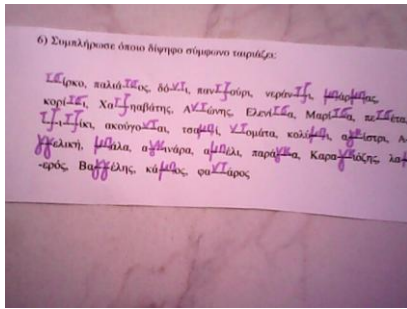 6) Συμπλήρωσε όποιο δίψηφο σύμφωνο ταιριάζει:
τσίρκο, παλιάτσος, δόντι, παντζούρι, νεράντζι, μπάρμπας,
κορίτσι, Χατζηαβάτης, Αντώνης, Ελενίτσα, Μαρίτσα, πετσέτα,
τζιτζίκι, ακούγονται, τσαμπί, ντομάτα, κολύμπι, αγκίστρι, Α-
γγελική, μπάλα, αγκινάρα, αμπέλι, παράγκα, Καραγκιόζης, λαμπ
-ερός, Βαγγέλης, κάμπος, φαντάρος